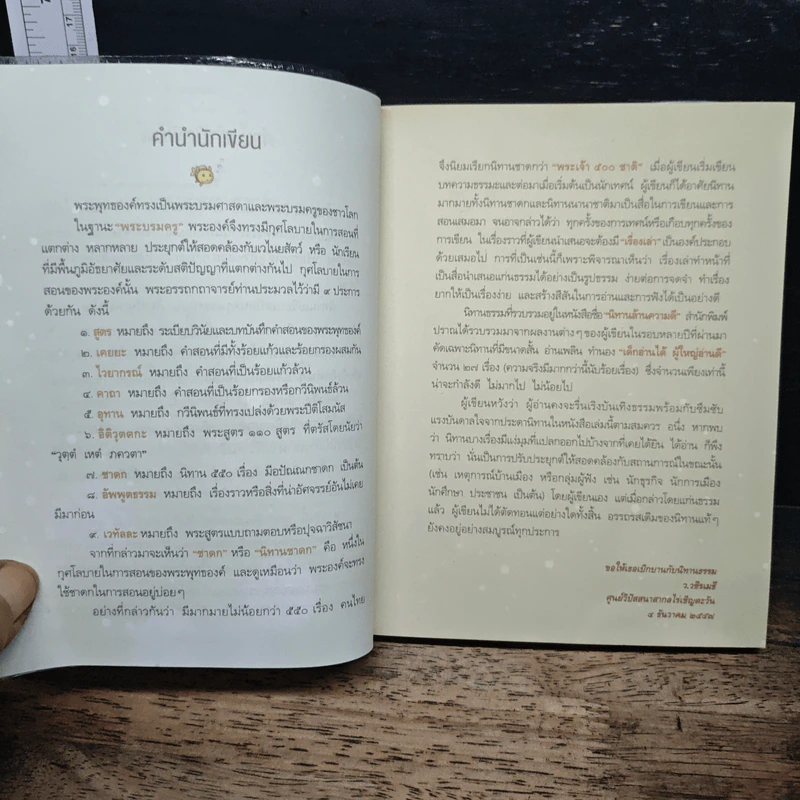 คำนำนักเขียน
พระพุทธองค์ทรงเป็นพระบรมศาสดาและพระบรมครูของชาวโลก
ในฐานะ "พระบรมครู" พระองค์จึงทรงมีกุศโลบายในการสอนที่
แตกต่าง หลากหลาย ประยุกต์ให้สอดคล้องกับเวไนยสัตว์ หรือ นักเรียน
ที่มีพื้นภูมิอัธยาศัยและระดับสติปัญญาที่แตกต่างกันไป กุศโลบายในการ
สอนของพระองค์นั้น พระอรรถกถาจารย์ท่านประมวลไว้ว่ามี ๙ ประการ
ด้วยกัน ดังนี้
๑. สูตร หมายถึง ระเบียบวินัยและบทบันทึกคำสอนของพระพุทธองค์
๒. เคยยะ หมายถึง คำสอนที่มีทั้งร้อยแก้วและร้อยกรองผสมกัน
๓. ไวยากรณ์ หมายถึง คำสอนที่เป็นร้อยแก้วล้วน
๔. คาถา หมายถึง คำสอนที่เป็นร้อยกรองหรือกวีนิพนธ์ล้วน
๕. อุทาน หมายถึง กวีนิพนธ์ที่ทรงเปล่งด้วยพระปีติโสมนัส
๖. อิติวุตตกะ หมายถึง พระสูตร ๑๑๐ สูตร ที่ตรัสโดยนัยว่า
"วุตฺตํ เหตํ ภควตา"
๗. ชาดก หมายถึง นิทาน ๕๕๐ เรื่อง มีอปัณณกชาดก เป็นต้น
๘. อัพพูตธรรม หมายถึง เรื่องราวหรือสิ่งที่น่าอัศจรรย์อันไม่เคย
มีมาก่อน
๙. เวทัลละ หมายถึง พระสูตรแบบถามตอบหรือปุจฉาวิสัชนา
จากที่กล่าวมาจะเห็นว่า "ชาดก" หรือ "นิทานชาดก" คือ หนึ่งใน
กุศโลบายในการสอนของพระพุทธองค์ และดูเหมือนว่า พระองค์จะทรง
ใช้ชาดกในการสอนอยู่บ่อยๆ
อย่างที่กล่าวกันว่า มีมากมายไม่น้อยกว่า ๕๕๐ เรื่อง คนไทย
จึงนิยมเรียกนิทานชาดกว่า "พระเจ้า ๕๐๐ ชาติ" เมื่อผู้เขียนเริ่มเขียน
บทความธรรมะและต่อมาเมื่อเริ่มต้นเป็นนักเทศน์ ผู้เขียนก็ได้อาศัยนิทาน
มากมายทั้งนิทานชาดกและนิทานนานาชาติมาเป็นสื่อในการเขียนและการ
สอนเสมอมา จนอาจกล่าวได้ว่า ทุกครั้งของการเทศน์หรือเกือบทุกครั้งของ
การเขียน ในเรื่องราวที่ผู้เขียนนำเสนอจะต้องมี "เรื่องเล่า" เป็นองค์ประกอบ
ด้วยเสมอไป การที่เป็นเช่นนี้ก็เพราะพิจารณาเห็นว่า เรื่องเล่าทำหน้าที่
เป็นสื่อนำเสนอแก่นธรรมได้อย่างเป็นรูปธรรม ง่ายต่อการจดจำ ทำเรื่อง
ยากให้เป็นเรื่องง่าย และสร้างสีสันในการอ่านและการฟังได้เป็นอย่างดี
นิทานธรรมที่รวบรวมอยู่ในหนังสือชื่อ "นิทานล้านความดี" สำนักพิมพ์
ปราณได้รวบรวมมาจากผลงานต่างๆ ของผู้เขียนในรอบหลายปีที่ผ่านมา
คัดเฉพาะนิทานที่มีขนาดสั้น อ่านเพลิน ทำนอง "เด็กอ่านได้ ผู้ใหญ่อ่านดี"
จำนวน ๒๗ เรื่อง (ความจริงมีมากกว่านี้นับร้อยเรื่อง) ซึ่งจำนวนเพียงเท่านี้
น่าจะกำลังดี ไม่มากไป ไม่น้อยไป
ผู้เขียนหวังว่า ผู้อ่านคงจะรื่นเริงบันเทิงธรรมพร้อมกับซึมซับ
แรงบันดาลใจจากประดานิทานในหนังสือเล่มนี้ตามสมควร อนึ่ง หากพบ
ว่า นิทานบางเรื่องมีแง่มุมที่แปลกออกไปบ้างจากที่เคยได้ยิน ได้อ่าน ก็พึง
ทราบว่า นั่นเป็นการปรับประยุกต์ให้สอดคล้องกับสถานการณ์ในขณะนั้น
(เช่น เหตุการณ์บ้านเมือง หรือกลุ่มผู้ฟัง เช่น นักธุรกิจ นักการเมือง
นักศึกษา ประชาชน เป็นต้น) โดยผู้เขียนเอง แต่เมื่อกล่าวโดยแก่นธรรม
แล้ว ผู้เขียนไม่ได้ตัดทอนแต่อย่างใดทั้งสิ้น อรรถรสเดิมของนิทานแท้ๆ
ยังคงอยู่อย่างสมบูรณ์ทุกประการ
ขอให้เธอเบิกบานกับนิทานธรรม
ว.วชิรเมธี
ศูนย์วิปัสสนาสากลไร่เชิญตะวัน
๔ ธันวาคม ๒๕๕๗
17
16